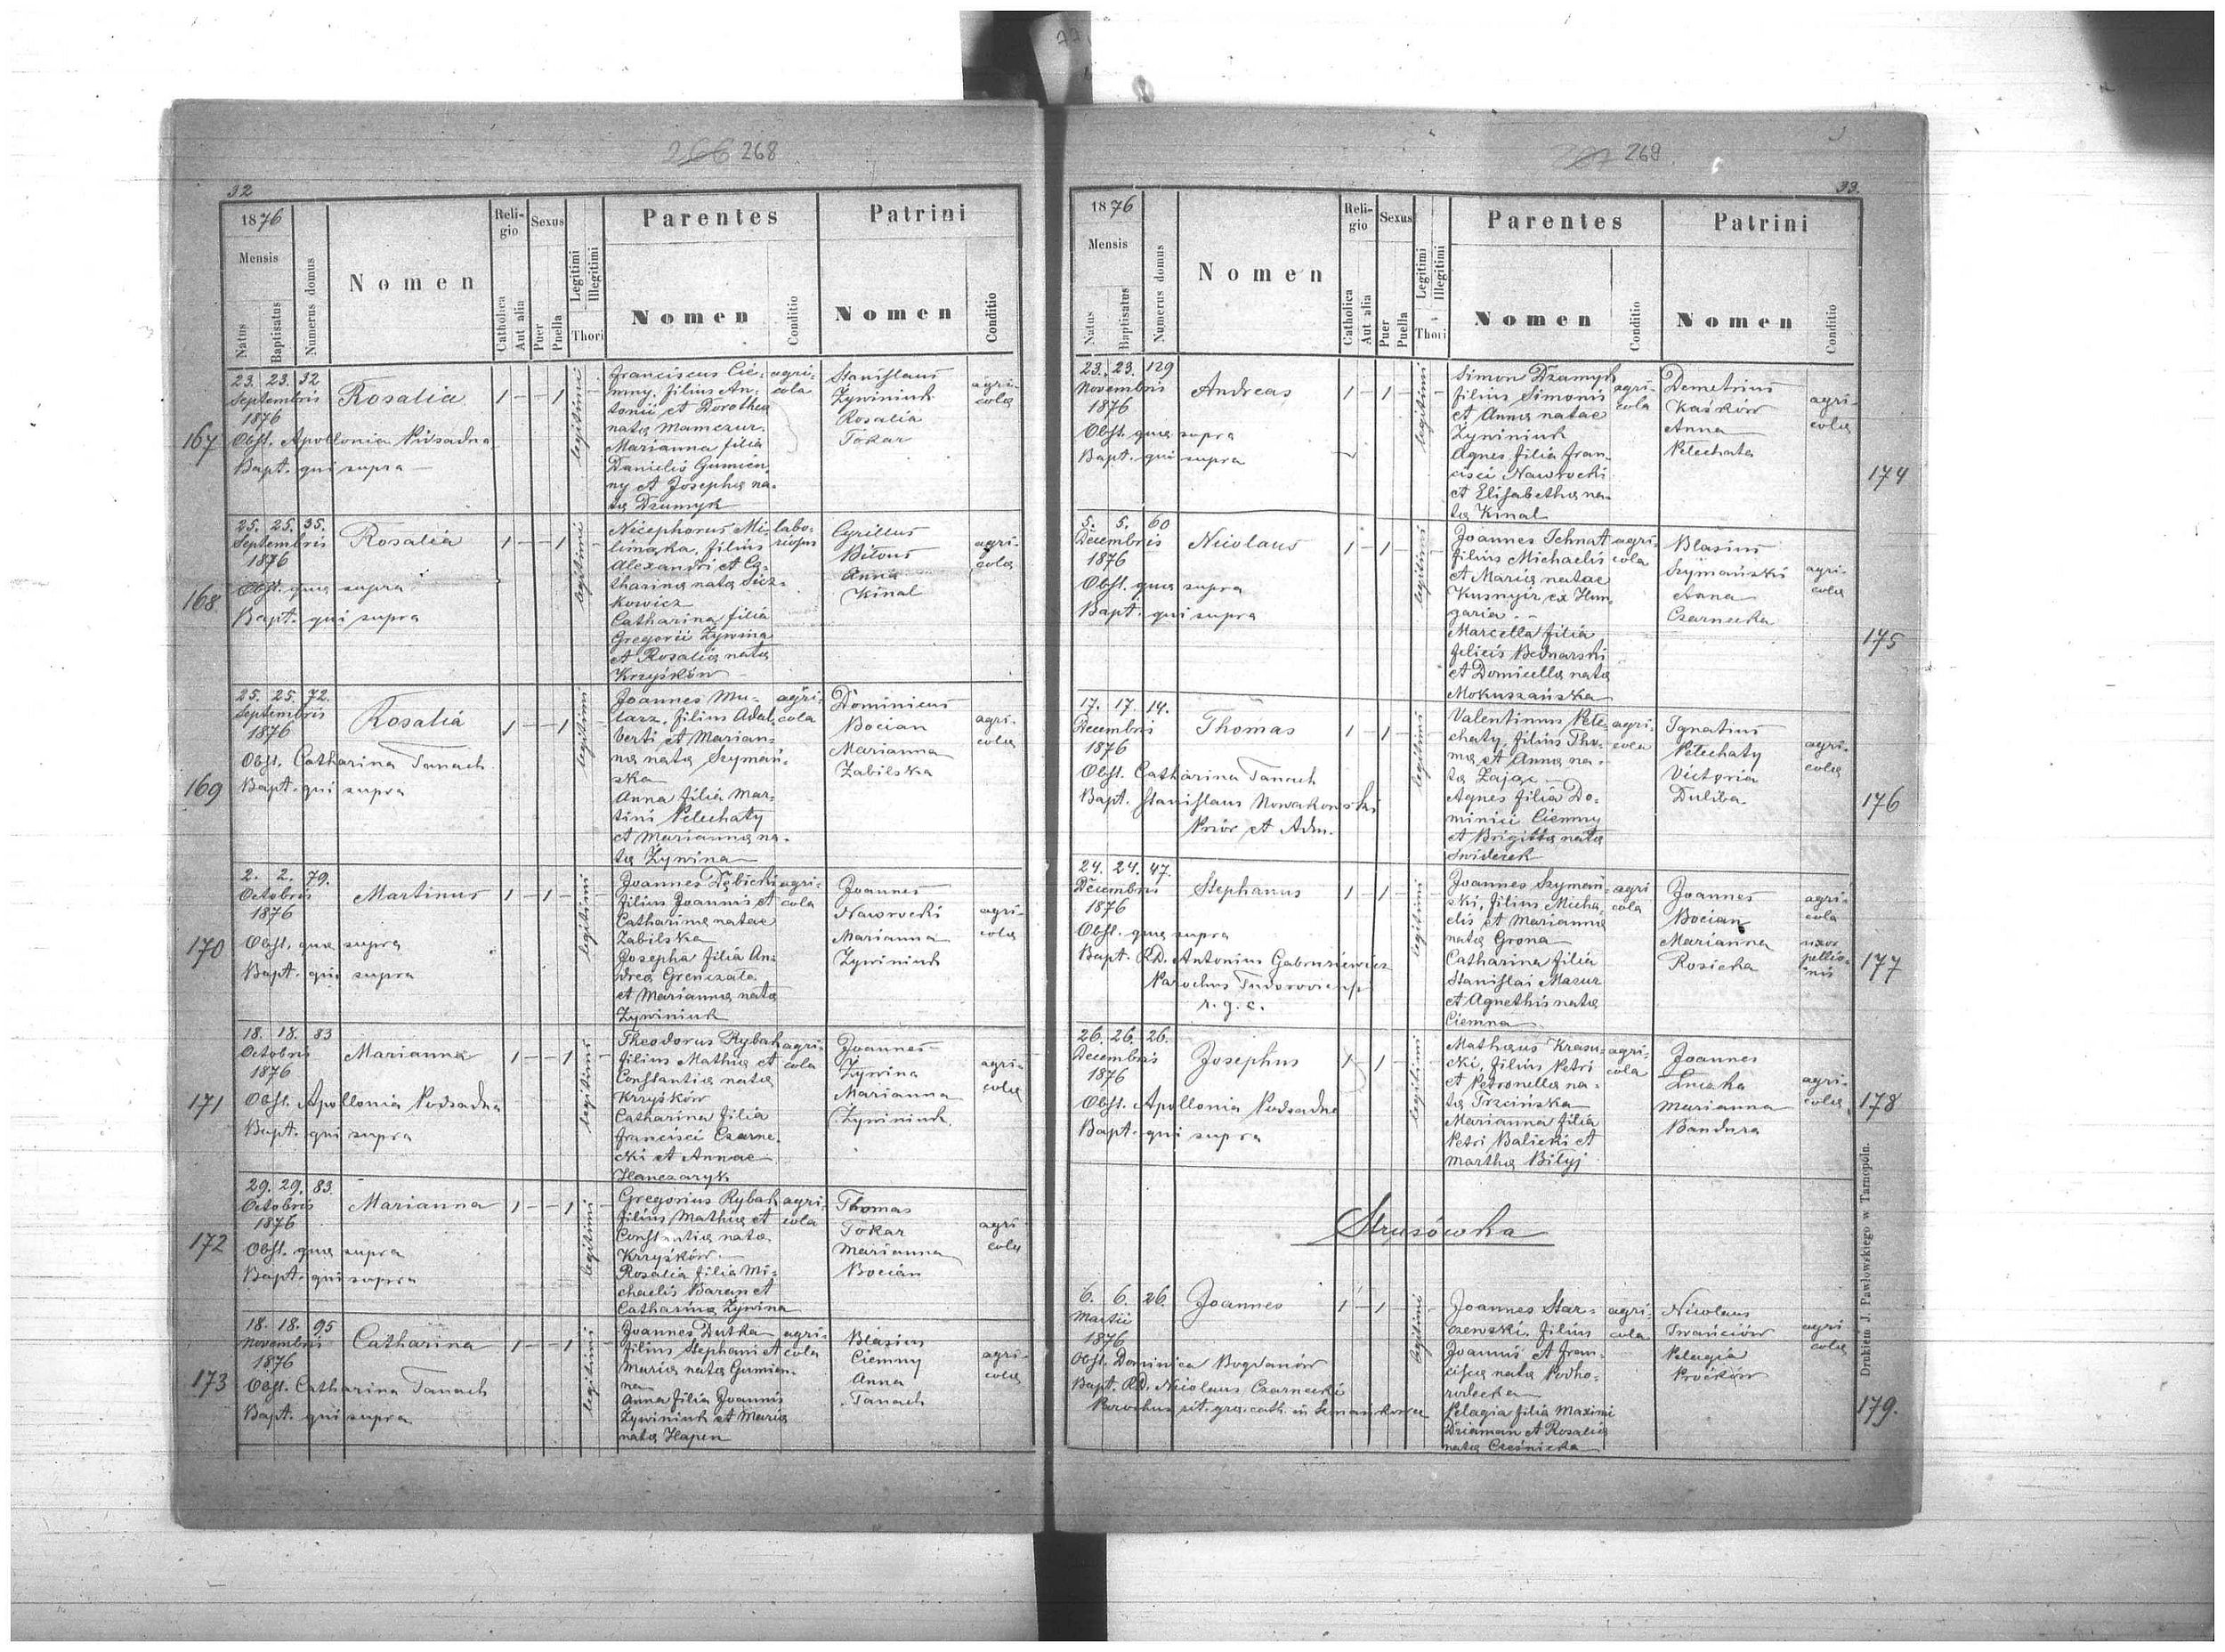 266 268
32
1876
Mensis
Natus
Baptisatus
Numerus domus
Nomen
Religio
Catholica
Aut alia
Sexus
Puer
Puella
Legitimi
Illegitimi
Thori
Parentes
Nomen
Conditio
Patrini
Nomen
Conditio
167
23. 23. 32
Septembris
1876
Obst. Apollonia Podsadna
Bapt. qui supra
Rosalia
1 — — 1
legitimi
Franciscus Cie-
mny, filius An-
tonii et Dorothea
nata Mamczur.
Marianna filia
Danielis Gumien-
ny et Josepha na-
ta Dzumyk
agri-
cola
Stanislaus
Żywiniuk
Rosalia
Tokar
agri-
cola
168
25. 25. 35.
Septembris
1876
Obst. qua supra
Bapt. qui supra
Rosalia
1 — — 1
legitimi
Nicephorus Mi-
limaka, filius
Alexandri et Ca-
tharina nata Sicz-
kowicz
Catharina filia
Gregorii Żywina
et Rosalia nata
Krzyśków
labo-
riosus
Cyrillus
Biłous
Anna
Kinal
agri-
cola
169
25. 25. 72.
Septembris
1876
Obst. Catharina Tanach
Bapt. qui supra
Rosalia
1 — — 1
legitimi
Joannes Mu-
larz, filius Adal-
berti et Marian-
na nata Szymań-
ska
Anna filia Mar-
tini Pelechaty
et Marianna na-
ta Żywina
agri-
cola
Dominicus
Bocian
Marianna
Zabilska
agri-
cola
170
2. 2. 79.
Octobris
1876
Obst. qua supra
Bapt. qui supra
Martinus
1 — 1 —
legitimi
Joannes Dębicki
filius Joannis et
Catharina natae
Zabilska
Josepha filia An-
drea Grenczata
et Marianna nata
Żywiniuk
agri-
cola
Joannes
Nawrocki
Marianna
Żywiniuk
agri-
cola
171
18. 18. 83
Octobris
1876
Obst. Apollonia Podsadna
Bapt. qui supra
Marianna
1 — — 1
legitimi
Theodorus Rybak
filius Mathia et
Constantia nata
Krzyśków
Catharina filia
Francisci Czarne-
cki et Annae
Hanczaryk
agri-
cola
Joannes
Żywina
Marianna
Żywiniuk
agri-
cola
172
29. 29. 83.
Octobris
1876
Obst. qua supra
Bapt. qui supra
Marianna
1 — — 1
legitimi
Gregorius Rybak
filius Mathia et
Constantia nata
Krzyśków
Rosalia filia Mi-
chaelis Baran et
Catharina Żywina
agri-
cola
Thomas
Tokar
Marianna
Bocian
agri-
cola
173
18. 18. 95
Novembris
1876
Obst. Catharina Tanach
Bapt. qui supra
Catharina
1 — — 1
legitimi
Joannes Dutka
filius Stephani et
Maria nata Gumien-
na
Anna filia Joannis
Żywiniuk et Maria
nata Hapen
agri-
cola
Blasius
Ciemny
Anna
Tanach
agri-
cola
269
33.
1876
Mensis
Natus
Baptisatus
Numerus domus
Nomen
Religio
Catholica
Aut alia
Sexus
Puer
Puella
Legitimi
Illegitimi
Thori
Parentes
Nomen
Conditio
Patrini
Nomen
Conditio
23. 23. 129
Novembris
1876
Obst. qua supra
Bapt. qui supra
Andreas
1 — 1 —
legitimi
Simon Dzamyk
filius Simonis
et Anna natae
Żywiniuk
Agnes filia Fran-
cisci Nawrocki
et Elisabetha na-
ta Kinal
agri-
cola
Demetrius
Kaśków
Anna
Pelechata
agri-
cola
174
5. 5. 60
Decembris
1876
Obst. qua supra
Bapt. qui supra
Nicolaus
1 — 1 —
legitimi
Joannes Ichnat
filius Michaelis
et Maria natae
Kusnyir ex Hun-
garia.
Marcella filia
Felicis Bednarski
et Domicella nata
Mokuszańska
agri-
cola
Blasius
Szymański
Anna
Czarnecka
agri-
cola
175
17. 17. 14.
Decembris
1876
Obst. Catharina Tanach
Bapt. Stanislaus Nowakowski
Prior et Adm.
Thomas
1 — 1 —
legitimi
Valentinus Pele-
chaty, filius Tho-
ma et Anna na-
ta Zając
Agnes filia Do-
minici Ciemny
et Brigitta nata
Swiderek
agri-
cola
Ignatius
Pelechaty
Victoria
Duliba
agri-
cola
176
24. 24. 47.
Decembris
1876
Obst. qua supra
Bapt. RD. Antonius Gabrusiewicz
Parochus
r. g. c.
Stephanus
1 — 1 —
legitimi
Joannes Szymań-
ski, filius Micha-
elis et Marianna
nata Grona
Catharina filia
Stanislai Mazur
et Agnethis nata
Ciemna
agri-
cola
Joannes
Bocian
Marianna
Rosicka
agri-
cola
uxor
pellio-
nis
177
26. 26. 26.
Decembris
1876
Obst. Apollonia Podsadna
Bapt. qui supra
Josephus
1 — 1 —
legitimi
Mathaus Krasu-
cki, filius Petri
et Petronella na-
ta Trzcińska
Marianna filia
Petri Balicki et
Martha Bilyj
agri-
cola
Joannes
Marianna
Bandura
agri-
cola
178
Strusówka
6. 6. 26.
Martii
1876
Obst. Dominica Bogdanów
Bapt. RD. Nicolaus Czarnecki
Parochus rit. gra. cath. in
Joannes
1 — 1 —
legitimi
Joannes Star-
szewski, filius
Joannis et Fran-
cisca nata Podho-
rodecka
Pelagia filia Maximi
Dziaman et Rosalia
nata Cieśnicka
agri-
cola
Nicolaus
Iwańciów
Pelagia
Proćków
agri-
cola
179.
Drukiem J. Pawłowskiego w Tarnopoln.